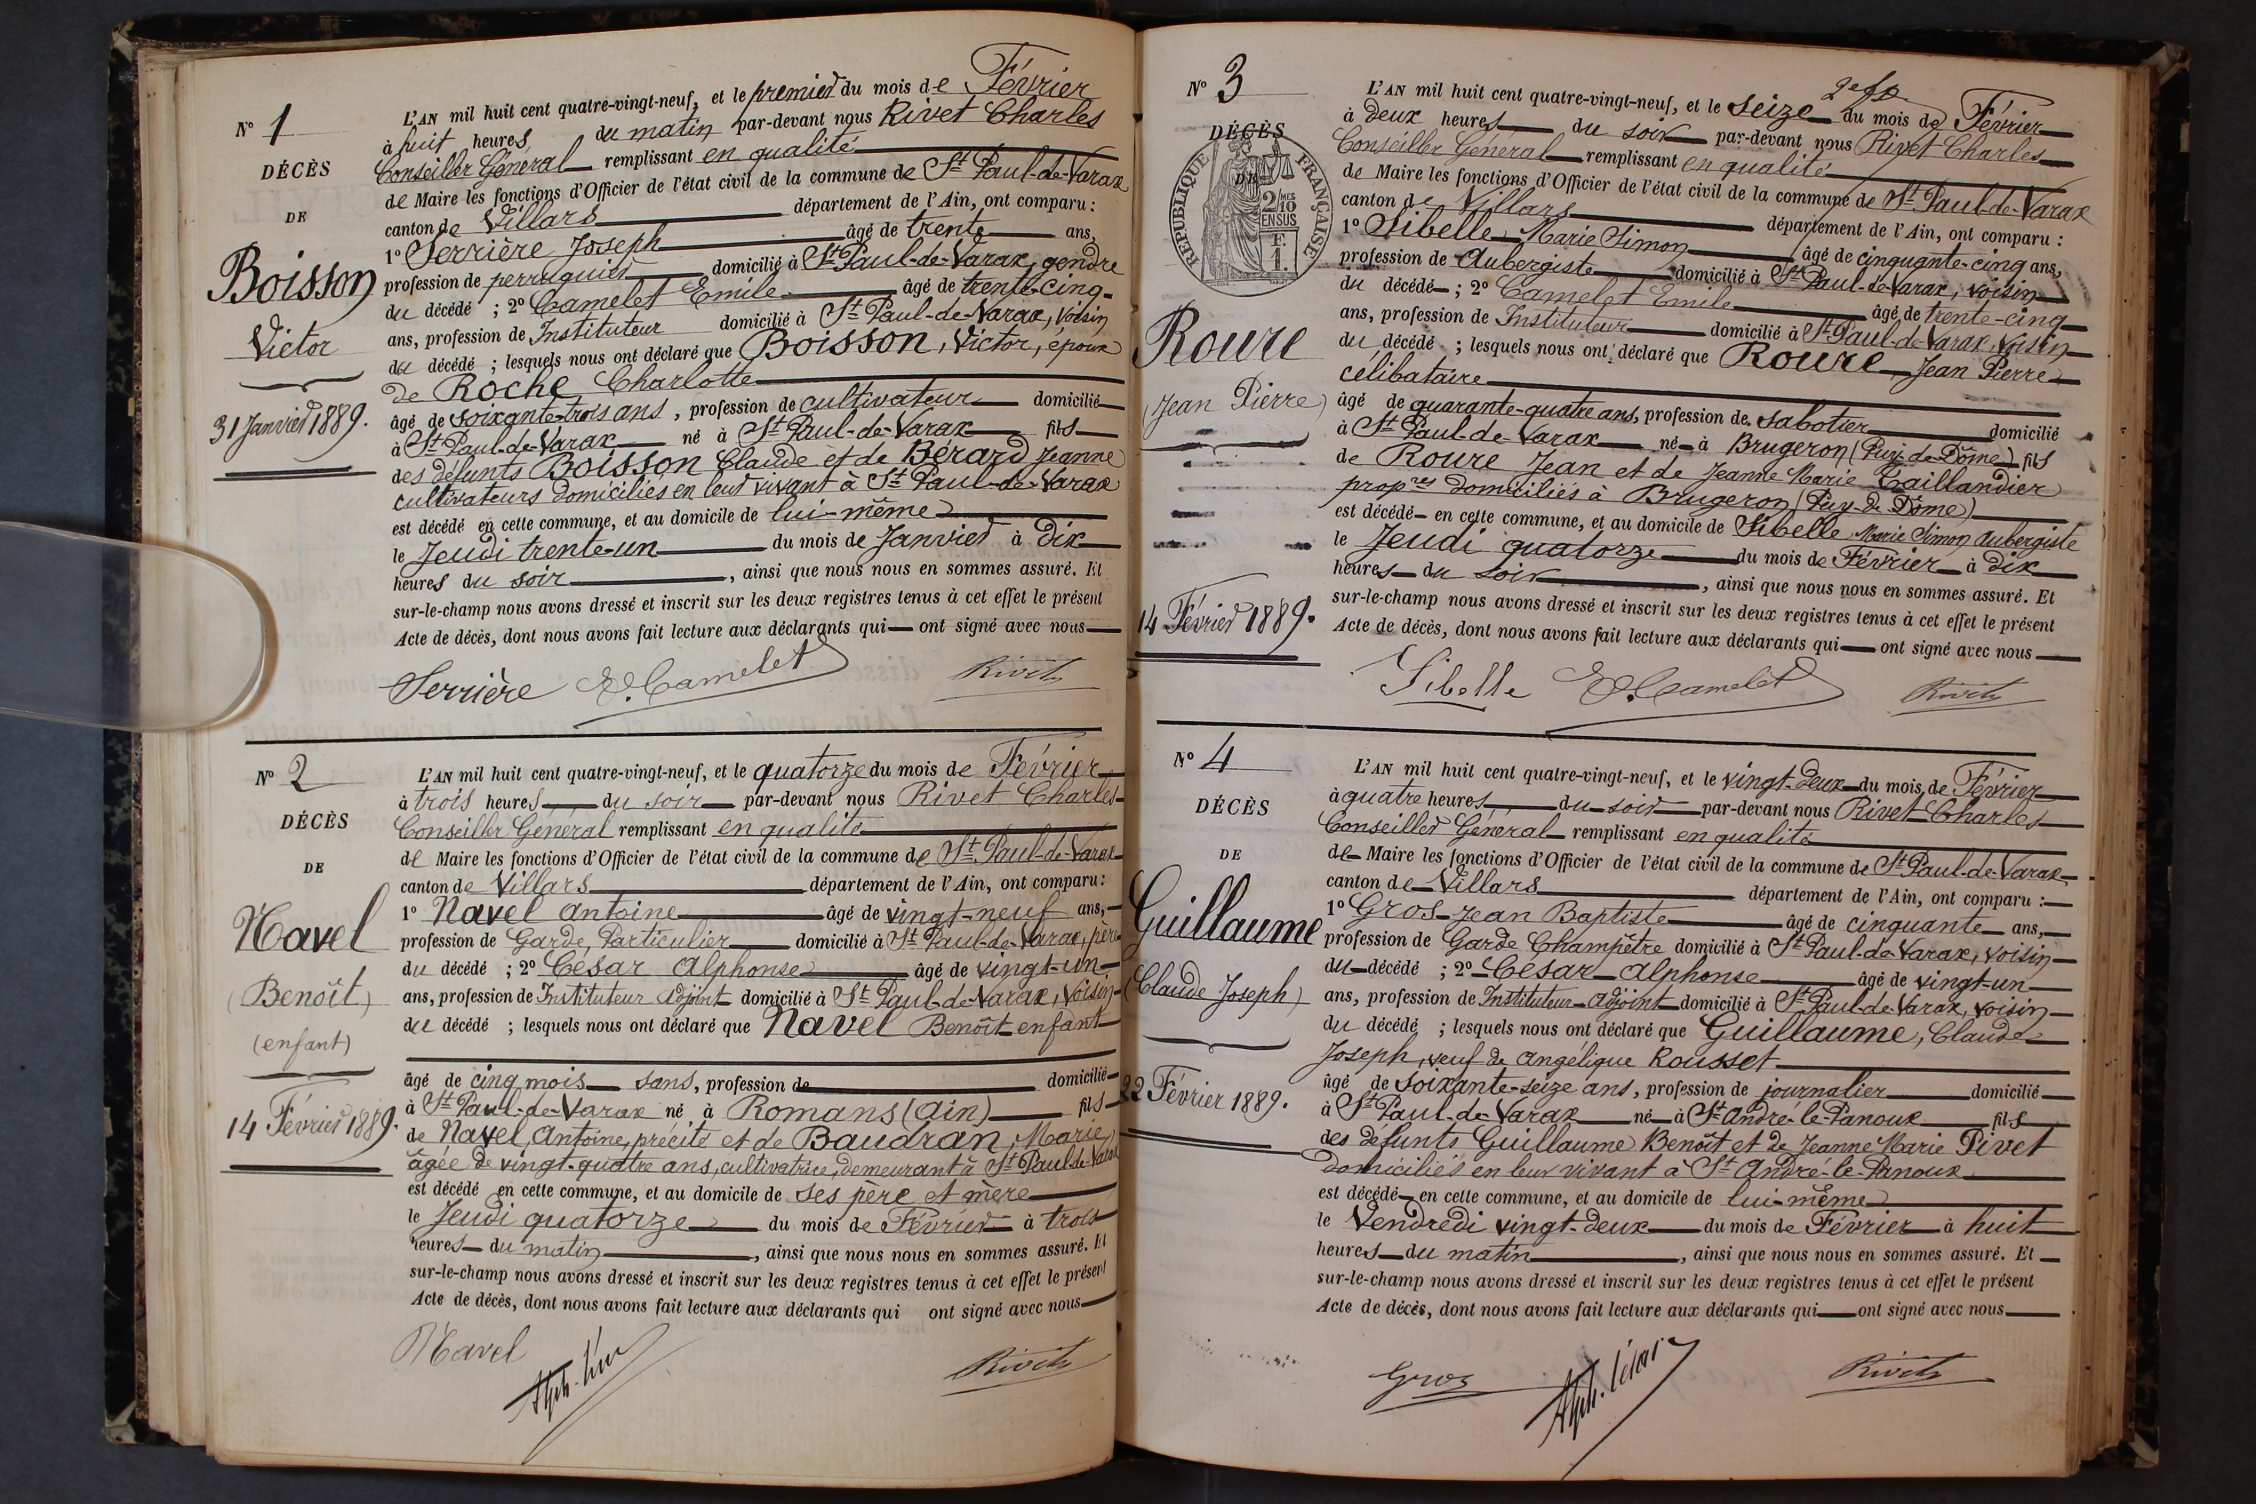 Nº 1
DÉCÈS
DE
Boisson
Victor
31 Janvier 1889.
L'AN mil huit cent quatre-vingt-neuf, et le premier du mois de Février
à huit heures du matin par-devant nous Rivet Charles
Conseiller Général remplissant en qualité
de Maire les fonctions d'Officier de l'état civil de la commune de St Paul-de-Varax
canton de Villars département de l'Ain, ont comparu :
1º Serrière Joseph âgé de trente ans,
profession de perruquier domicilié à St Paul-de-Varax, gendre
du décédé ; 2º Camelet Emile âgé de trente-cinq
ans, profession de Instituteur domicilié à St Paul-de-Varax, voisin
du décédé ; lesquels nous ont déclaré que Boisson, Victor, époux
de Roche Charlotte
âgé de soixante-trois ans, profession de cultivateur domicilié
à St Paul-de-Varax né à St Paul-de-Varax fils
des défunts Boisson Claude et de Bérard Jeanne
cultivateurs domiciliés en leur vivant à St Paul-de-Varax
est décédé en cette commune, et au domicile de lui-même
le Jeudi trente-un du mois de Janvier à dix
heures du soir, ainsi que nous nous en sommes assuré. Et
sur-le-champ nous avons dressé et inscrit sur les deux registres tenus à cet effet le présent
Acte de décès, dont nous avons fait lecture aux déclarants qui ont signé avec nous
Serrière E. Camelet Rivet
Nº 2
DÉCÈS
DE
Navel
(Benoît)
(enfant)
14 Février 1889.
L'AN mil huit cent quatre-vingt-neuf, et le quatorze du mois de Février
à trois heures du soir par-devant nous Rivet Charles
Conseiller Général remplissant en qualité
de Maire les fonctions d'Officier de l'état civil de la commune de St Paul-de-Varax
canton de Villars département de l'Ain, ont comparu :
1º Navel Antoine âgé de vingt-neuf ans,
profession de Garde Particulier domicilié à St Paul-de-Varax, père
du décédé ; 2º César Alphonse âgé de vingt-un
ans, profession de Instituteur Adjoint domicilié à St Paul-de-Varax, voisin
du décédé ; lesquels nous ont déclaré que Navel Benoît enfant
âgé de cinq mois sans, profession de domicilié
à St Paul-de-Varax né à Romans (Ain) fils
de Navel, Antoine, précité et de Baudran, Marie,
âgée de vingt-quatre ans, cultivatrice, demeurant à St Paul-de-Varax
est décédé en cette commune, et au domicile de ses père et mère
le Jeudi quatorze du mois de Février à trois
heures du matin, ainsi que nous nous en sommes assuré. Et
sur-le-champ nous avons dressé et inscrit sur les deux registres tenus à cet effet le présent
Acte de décès, dont nous avons fait lecture aux déclarants qui ont signé avec nous
Navel Alph. César Rivet
Nº 3
DÉCÈS
DE
RÉPUBLIQUE FRANÇAISE
2/10 MES
EN SUS
F.
1.
Roure
(Jean Pierre)
14 Février 1889.
L'AN mil huit cent quatre-vingt-neuf, et le seize du mois de Février
à deux heures du soir par-devant nous Rivet Charles
Conseiller Général remplissant en qualité
de Maire les fonctions d'Officier de l'état civil de la commune de St Paul-de-Varax
canton de Villars département de l'Ain, ont comparu :
1º Sibelle, Marie Simon âgé de cinquante-cinq ans,
profession de Aubergiste domicilié à St Paul-de-Varax, voisin
du décédé ; 2º Camelet Emile âgé de trente-cinq
ans, profession de Instituteur domicilié à St Paul-de-Varax, voisin
du décédé ; lesquels nous ont déclaré que Roure, Jean Pierre
célibataire
âgé de quarante-quatre ans, profession de sabotier domicilié
à St Paul-de-Varax né à Brugeron (Puy-de-Dôme) fils
de Roure Jean et de Jeanne Marie Taillandier
propres domiciliés à Brugeron (Puy-de-Dôme)
est décédé en cette commune, et au domicile de Sibelle Marie Simon Aubergiste
le Jeudi quatorze du mois de Février à dix
heures du soir, ainsi que nous nous en sommes assuré. Et
sur-le-champ nous avons dressé et inscrit sur les deux registres tenus à cet effet le présent
Acte de décès, dont nous avons fait lecture aux déclarants qui ont signé avec nous
Sibelle E. Camelet Rivet
Nº 4
DÉCÈS
DE
Guillaume
(Claude Joseph)
22 Février 1889.
L'AN mil huit cent quatre-vingt-neuf, et le vingt-deux du mois de Février
à quatre heures du soir par-devant nous Rivet Charles
Conseiller Général remplissant en qualité
de Maire les fonctions d'Officier de l'état civil de la commune de St Paul-de-Varax
canton de Villars département de l'Ain, ont comparu :
1º Gros Jean Baptiste âgé de cinquante ans,
profession de Garde Champêtre domicilié à St Paul-de-Varax, voisin
du décédé ; 2º César Alphonse âgé de vingt-un
ans, profession de Instituteur Adjoint domicilié à St Paul-de-Varax, voisin
du décédé ; lesquels nous ont déclaré que Guillaume, Claude
Joseph, veuf de Angélique Rousset
âgé de soixante-seize ans, profession de journalier domicilié
à St Paul-de-Varax né à St André-le-Panoux fils
des défunts Guillaume Benoît et de Jeanne Marie Pivet
domiciliés en leur vivant à St André-le-Panoux
est décédé en cette commune, et au domicile de lui-même
le Vendredi vingt-deux du mois de Février à huit
heures du matin, ainsi que nous nous en sommes assuré. Et
sur-le-champ nous avons dressé et inscrit sur les deux registres tenus à cet effet le présent
Acte de décès, dont nous avons fait lecture aux déclarants qui ont signé avec nous
Gros Alph. César Rivet